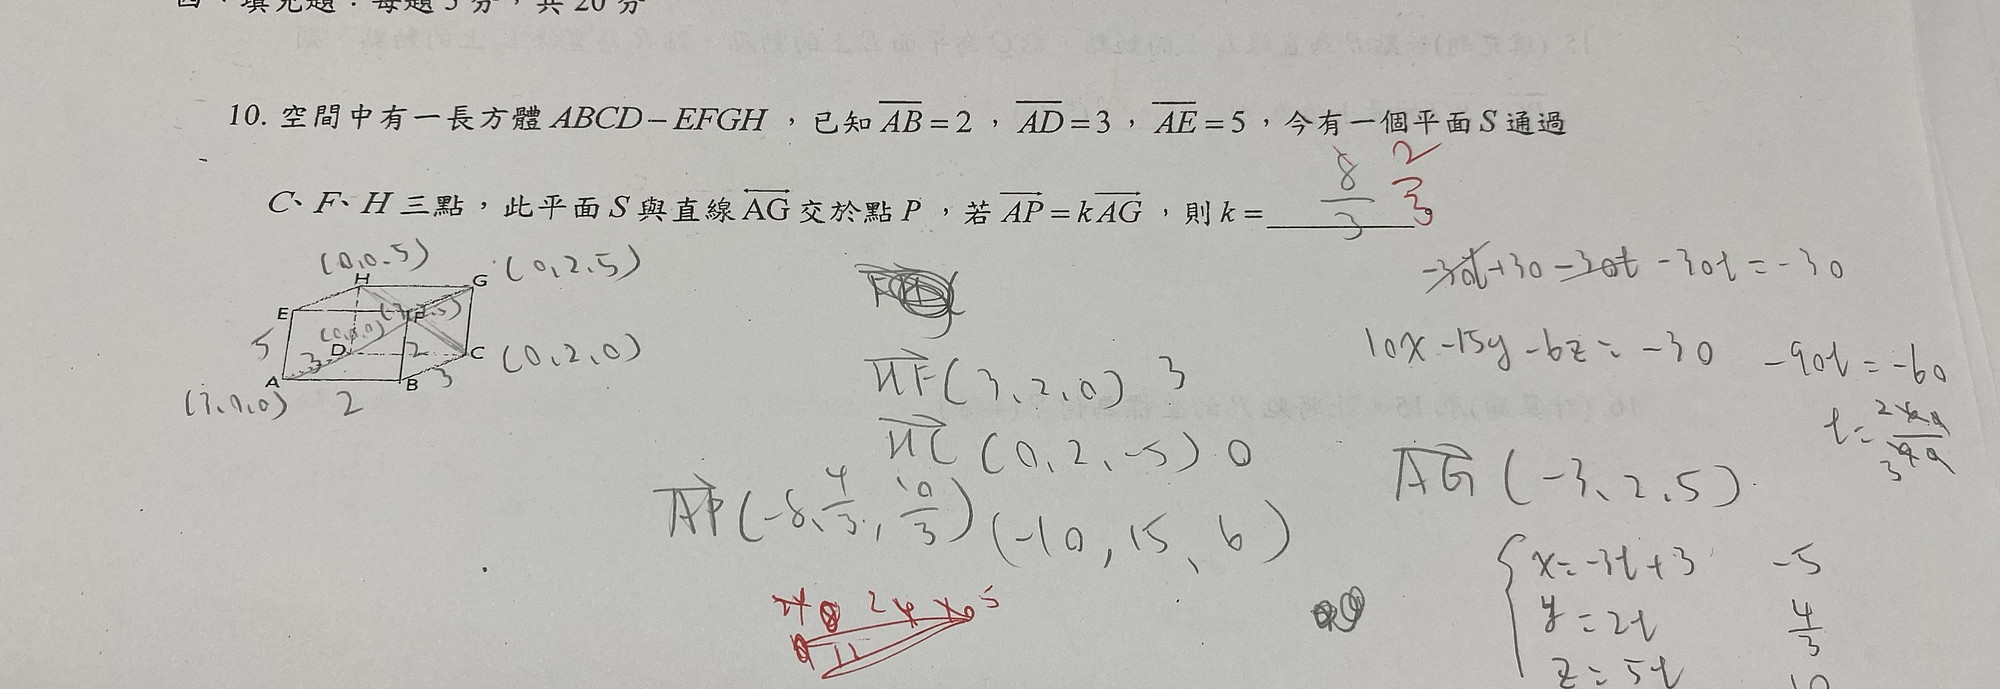 四、填充題：每題5分，共20分
10. 空間中有一長方體ABCD－EFGH，已知AB=2，AD=3，AE=5，今有一個平面S通過
C、F、H三點，此平面S與直線AG交於點P，若AP=kAG，則k=
8/3
2/3
(0,0,5)
H
G (0,2,5)
E
F
(0,0,0)
D
5
3
2
C (0,2,0)
A
B
3
(3,0,0)
2
HF(3,2,0) 3
HC(0,2,-5) 0
AP(-8,4/3,10/3) (-10,15,6)
-30t+30-30t-30t=-30
10x-15y-6z=-30
-90t=-60
AG(-3,2,5)
x=-3t+3 -5
y=2t 4/3
z=5t 10